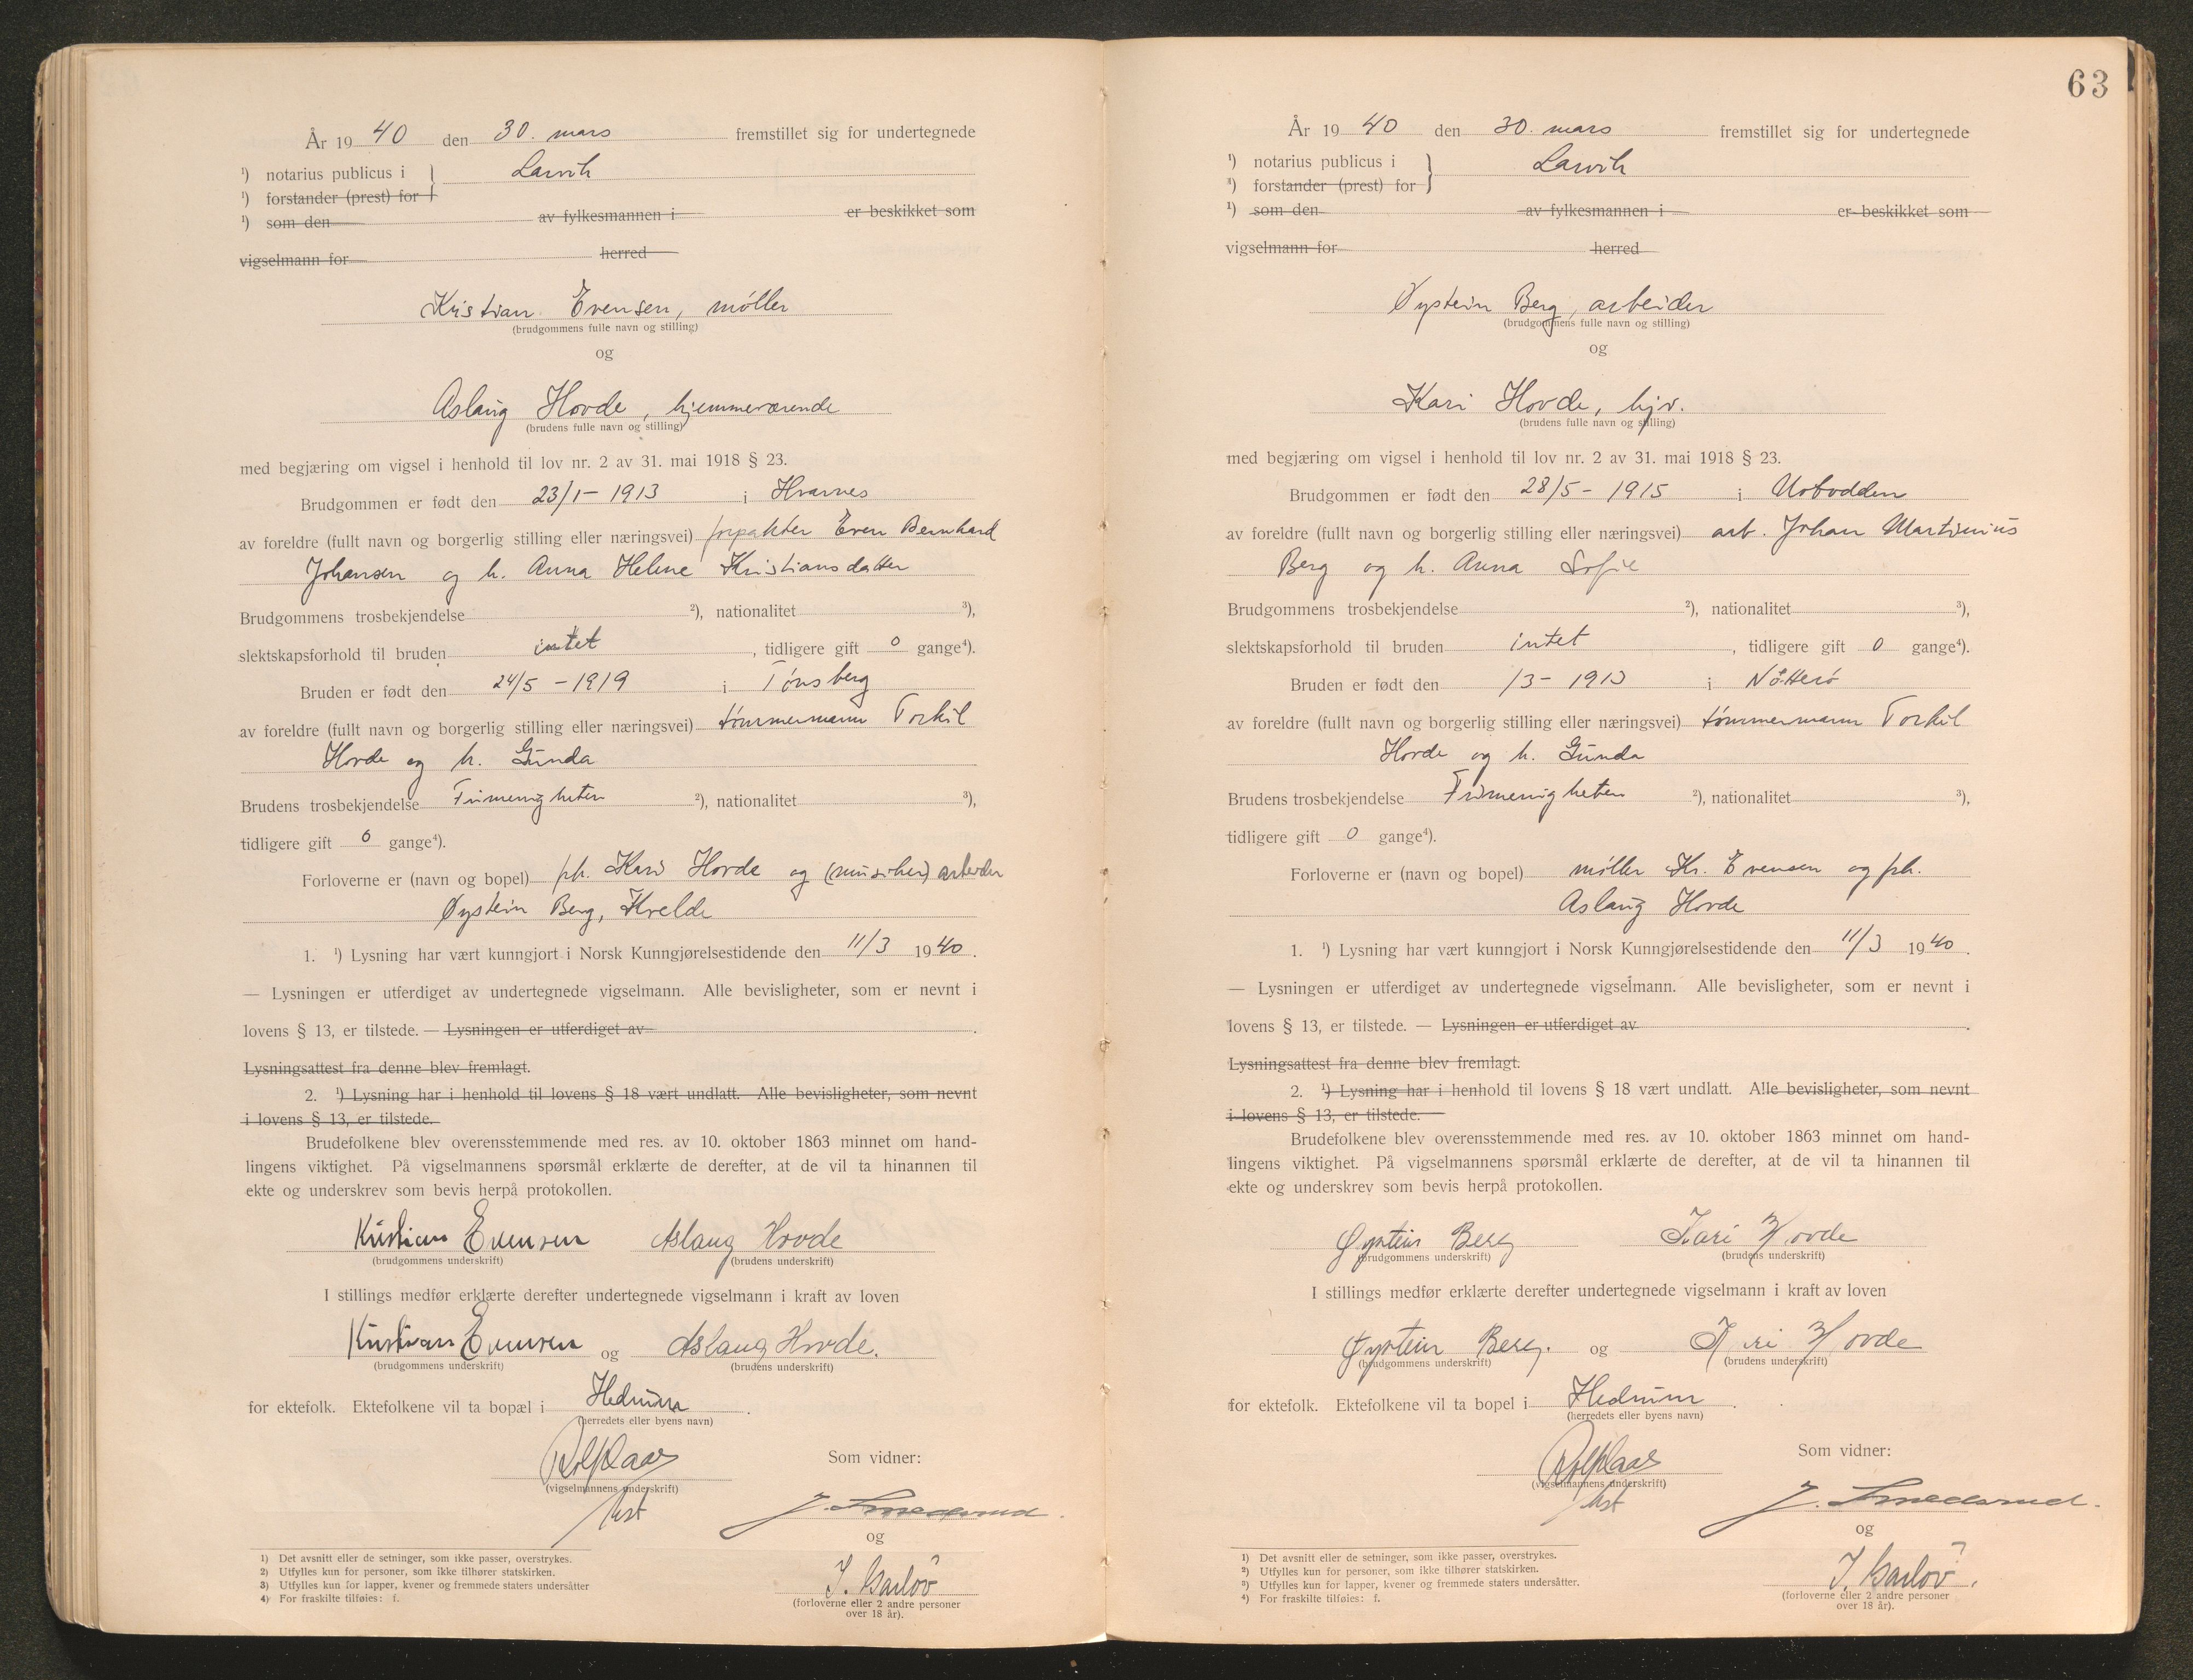 År 19 40 den 30. mars fremstillet sig for undertegnede
¹) notarius publicus i } Larvik
¹) forstander (prest) for
¹) som den av fylkesmannen i er beskikket som
vigselmann for herred
Kristian Evensen, møller
(brudgommens fulle navn og stilling)
og
Aslaug Hovde, hjemmeværende
(brudens fulle navn og stilling)
med begjæring om vigsel i henhold til lov nr. 2 av 31. mai 1918 § 23.
Brudgommen er født den 23/1 - 1913 i Hvarnes
av foreldre (fullt navn og borgerlig stilling eller næringsvei) forpakter Even Bernhard
Johansen og h. Anna Helene Kristiansdatter
Brudgommens trosbekjendelse ²), nationalitet ³),
slektskapsforhold til bruden intet, tidligere gift 0 gange⁴).
Bruden er født den 24/5 - 1919 i Tønsberg
av foreldre (fullt navn og borgerlig stilling eller næringsvei) tømmermann Torkil
Hovde og h. Gunda
Brudens trosbekjendelse Frimenigheten ²), nationalitet ³),
tidligere gift 0 gange⁴).
Forloverne er (navn og bopel) frk. Kari Hovde og (musiker) arbeider
Øystein Berg, Kvelde
1. ¹) Lysning har vært kunngjort i Norsk Kunngjørelsestidende den 11/3 1940.
— Lysningen er utferdiget av undertegnede vigselmann. Alle bevisligheter, som er nevnt i
lovens § 13, er tilstede. — Lysningen er utferdiget av .
Lysningsattest fra denne blev fremlagt.
2. ¹) Lysning har i henhold til lovens § 18 vært undlatt. Alle bevisligheter, som nevnt
i lovens § 13, er tilstede.
Brudefolkene blev overensstemmende med res. av 10. oktober 1863 minnet om hand-
lingens viktighet. På vigselmannens spørsmål erklærte de derefter, at de vil ta hinannen til
ekte og underskrev som bevis herpå protokollen.
Kristian Evensen Aslaug Hovde
(brudgommens underskrift) (brudens underskrift)
I stillings medfør erklærte derefter undertegnede vigselmann i kraft av loven
Kristian Evensen og Aslaug Hovde.
(brudgommens underskrift) (brudens underskrift)
for ektefolk. Ektefolkene vil ta bopæl i Hedrum.
(herredets eller byens navn)
Som vidner:
(vigselmannens underskrift)
J. Smedsrud.
og
(forloverne eller 2 andre personer
over 18 år).
1) Det avsnitt eller de setninger, som ikke passer, overstrykes.
2) Utfylles kun for personer, som ikke tilhører statskirken.
3) Utfylles kun for lapper, kvener og fremmede staters undersåtter
4) For fraskilte tilføies: f.
63
År 19 40 den 30. mars fremstillet sig for undertegnede
¹) notarius publicus i } Larvik
³) forstander (prest) for
¹) som den av fylkesmannen i er beskikket som
vigselmann for herred
Øystein Berg, arbeider
(brudgommens fulle navn og stilling)
og
Kari Hovde, hjv.
(brudens fulle navn og stilling)
med begjæring om vigsel i henhold til lov nr. 2 av 31. mai 1918 § 23.
Brudgommen er født den 28/5 - 1915 i Notodden
av foreldre (fullt navn og borgerlig stilling eller næringsvei) arb. Johan Martinius
Berg og h. Anna Sofie
Brudgommens trosbekjendelse ²), nationalitet ³),
slektskapsforhold til bruden intet, tidligere gift 0 gange⁴).
Bruden er født den /3 - 1913 i Nøtterø
av foreldre (fullt navn og borgerlig stilling eller næringsvei) tømmermann Torkil
Hovde og h. Gunda
Brudens trosbekjendelse Frimenigheten ²), nationalitet ³),
tidligere gift 0 gange⁴).
Forloverne er (navn og bopel) møller Kr. Evensen og frk.
Aslaug Hovde
1. ¹) Lysning har vært kunngjort i Norsk Kunngjørelsestidende den 11/3 1940.
— Lysningen er utferdiget av undertegnede vigselmann. Alle bevisligheter, som er nevnt i
lovens § 13, er tilstede. — Lysningen er utferdiget av .
Lysningsattest fra denne blev fremlagt.
2. ¹) Lysning har i henhold til lovens § 18 vært undlatt. Alle bevisligheter, som nevnt
i lovens § 13, er tilstede.
Brudefolkene blev overensstemmende med res. av 10. oktober 1863 minnet om hand-
lingens viktighet. På vigselmannens spørsmål erklærte de derefter, at de vil ta hinannen til
ekte og underskrev som bevis herpå protokollen.
Øystein Berg Kari Hovde
(brudgommens underskrift) (brudens underskrift)
I stillings medfør erklærte derefter undertegnede vigselmann i kraft av loven
Øystein Berg. og Kari Hovde
(brudgommens underskrift) (brudens underskrift)
for ektefolk. Ektefolkene vil ta bopel i Hedrum.
(herredets eller byens navn)
Som vidner:
(vigselmannens underskrift)
J. Smedsrud.
og
(forloverne eller 2 andre personer
over 18 år).
1) Det avsnitt eller de setninger, som ikke passer, overstrykes.
2) Utfylles kun for personer, som ikke tilhører statskirken.
3) Utfylles kun for lapper, kvener og fremmede staters undersåtter.
4) For fraskilte tilføies: f.